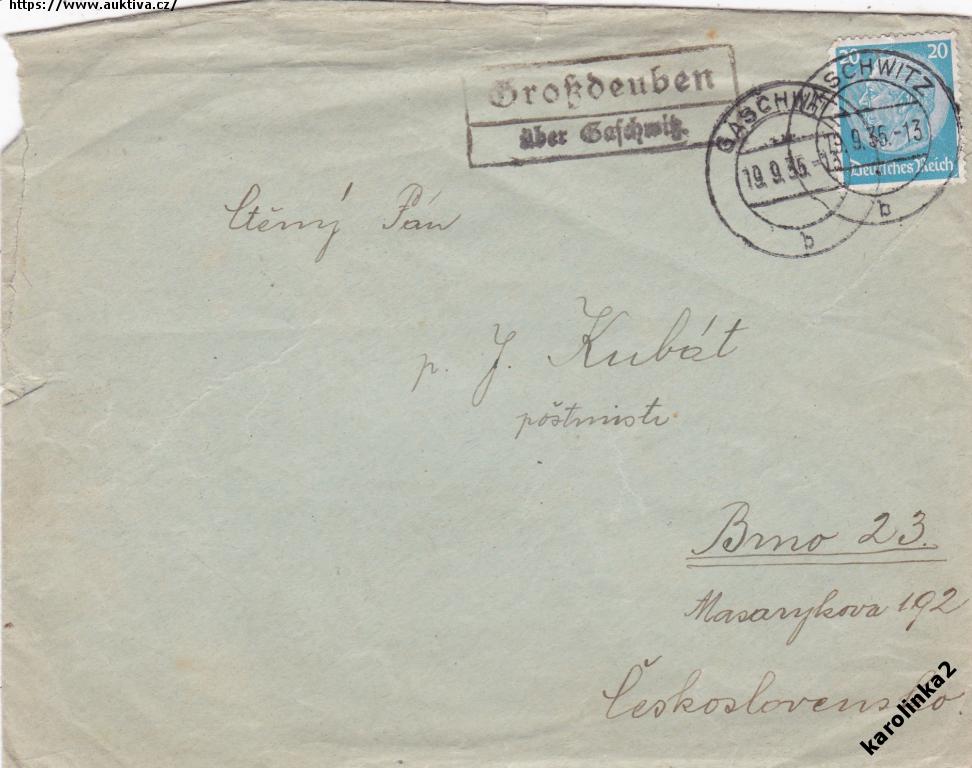 https://www.auktiva.cz/
Großdeuben
über Gaschwitz.
GASCHWITZ
19.9.35.-13
b
GASCHWITZ
19.9.35.-13
b
20 20
Deutsches Reich
Ctěný Pán
p. J. Kubát
pöštmistr
Brno 23.
Masarykova 192
Československo.
karolinka2